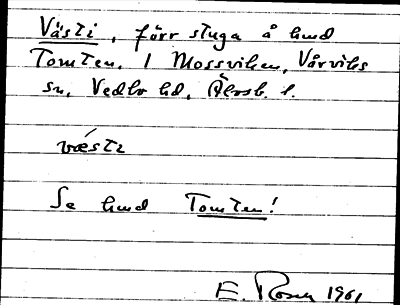 Västi, förr stuga å hmd
Tomten. I Mossviken, Vårviks
sn, Vedbo hd, Älvsb. l.
vǽsti
Se hmd Tomten!
E. Rosen 1961